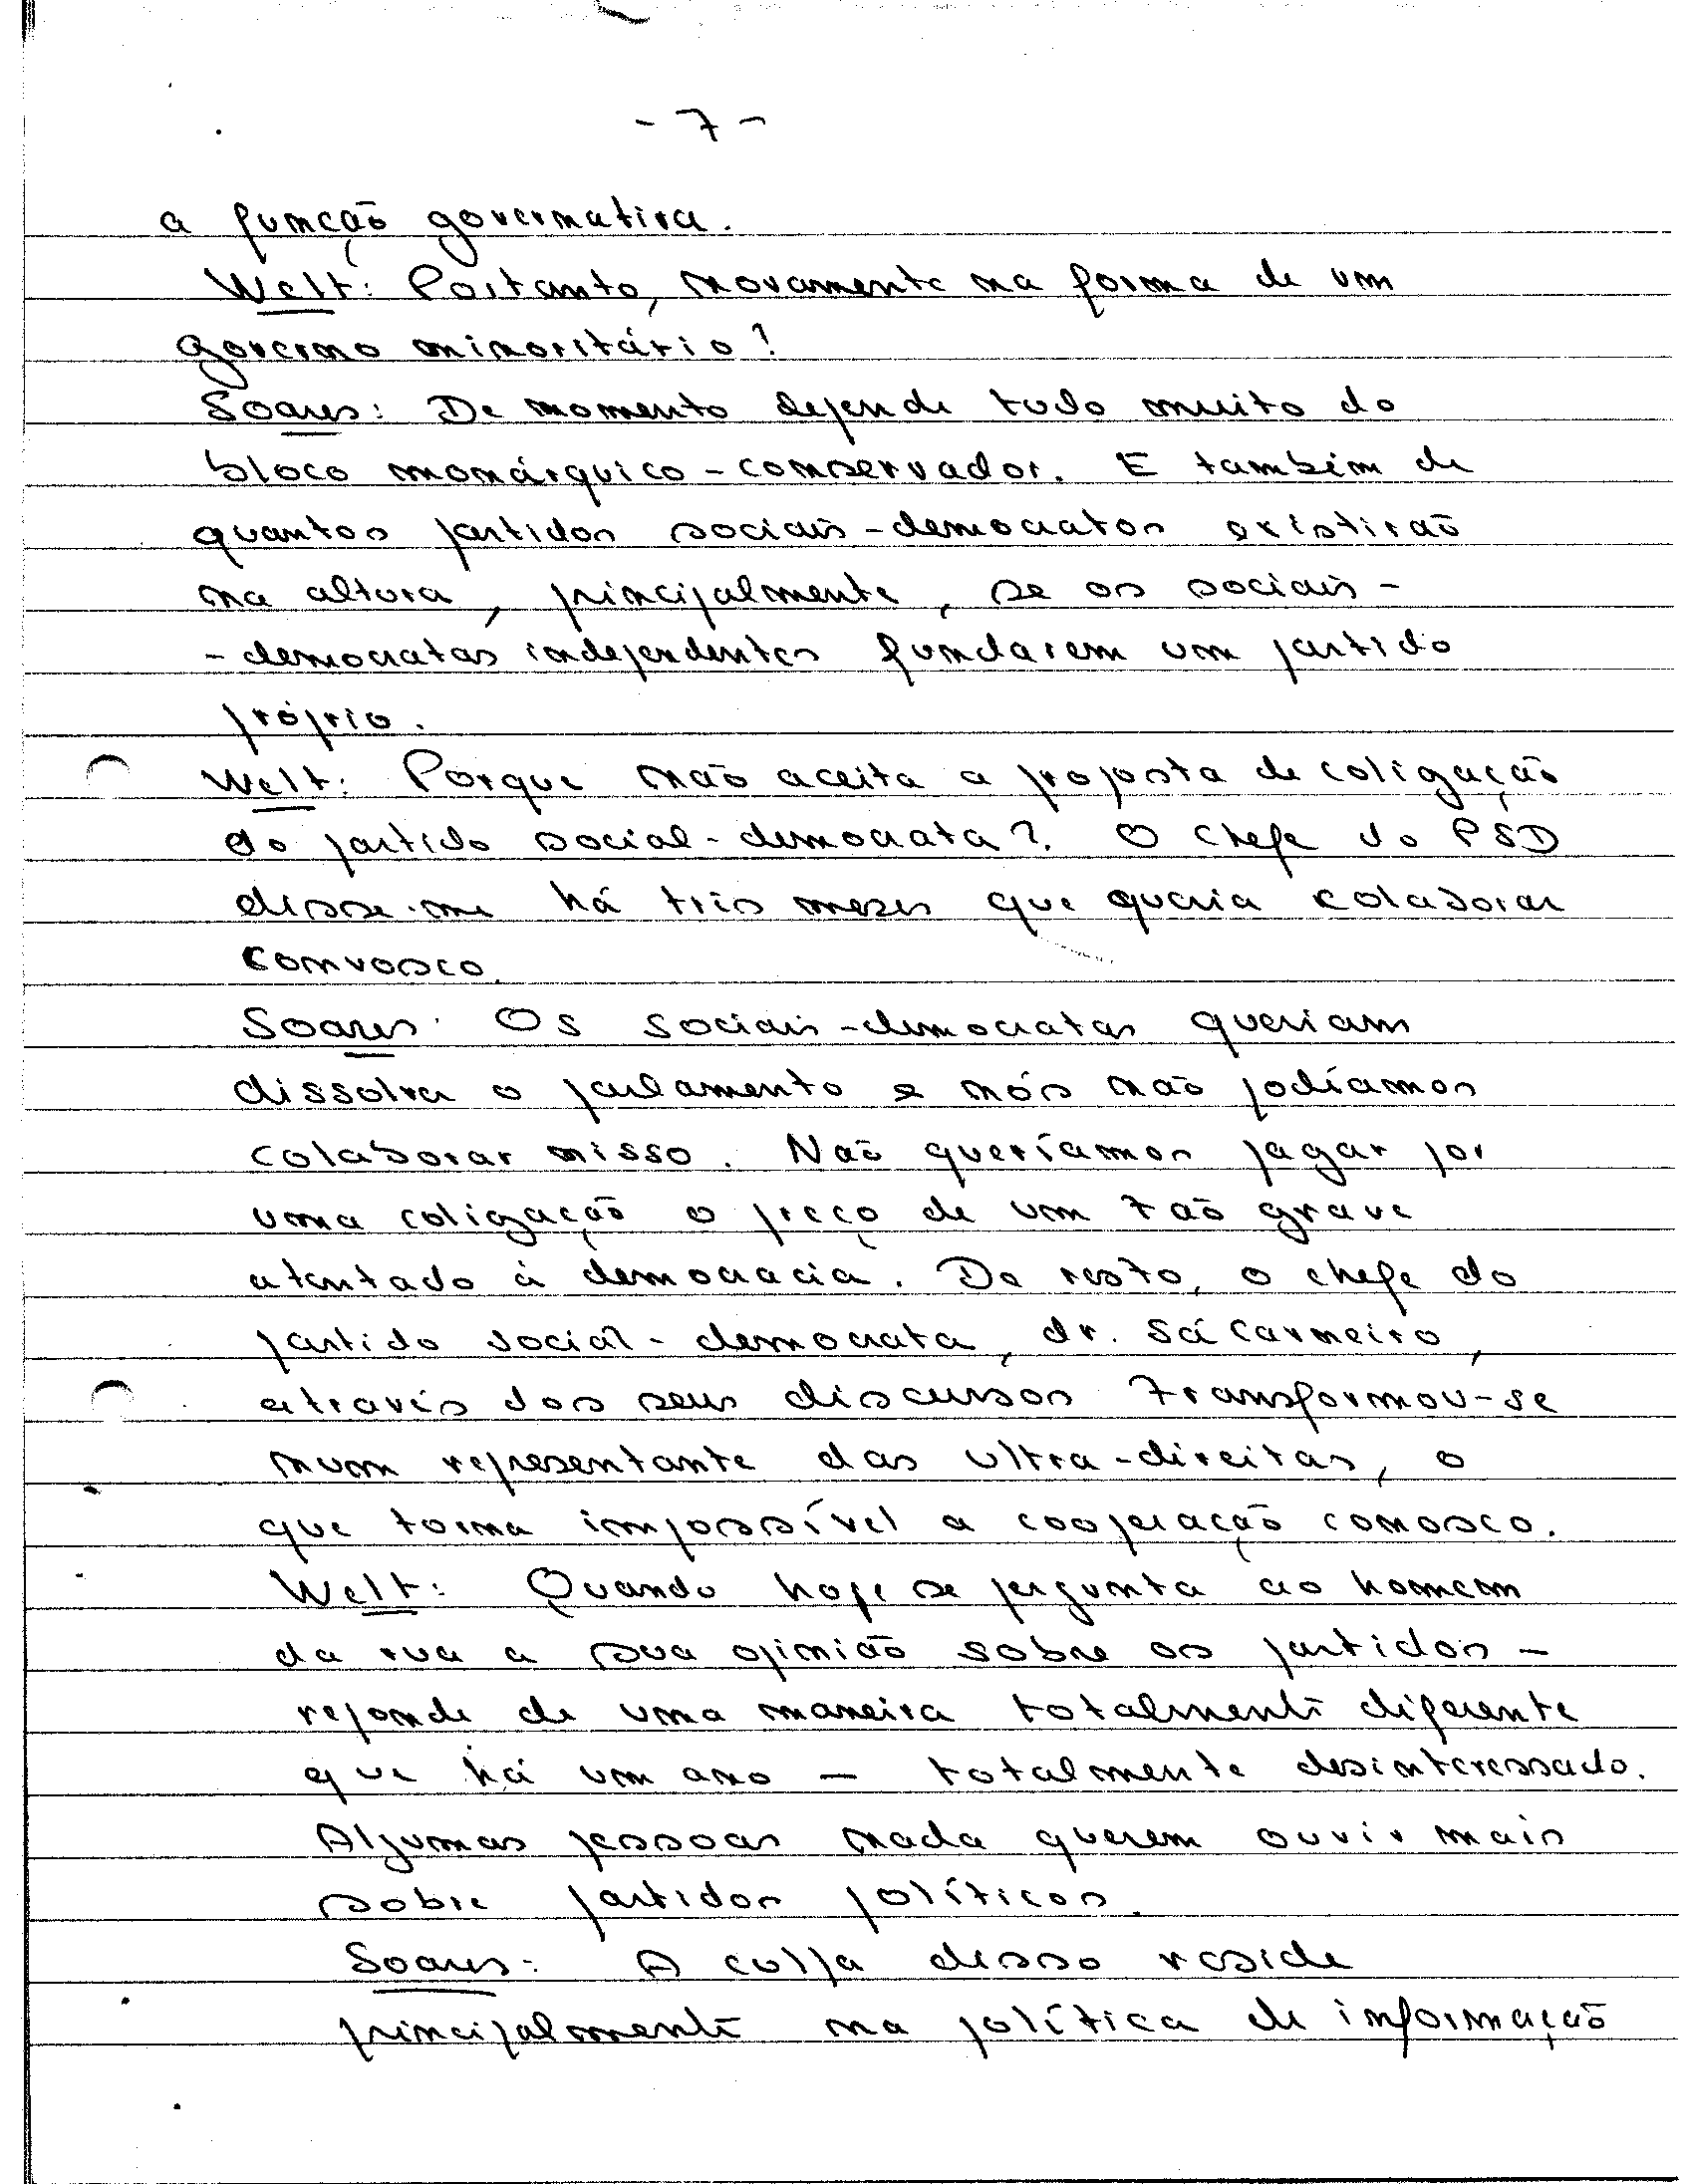 - 7 -
a função governativa.
Welt: Portanto, novamente na forma de um
governo minoritário?
Soares: De momento depende tudo muito do
bloco monárquico-conservador. E também de
quantos partidos sociais-democratas existirão
na altura, principalmente, se os sociais-
-democratas independentes fundarem um partido
próprio.
Welt: Porque não aceita a proposta de coligação
do partido social-democrata? O chefe do PSD
disse-me há três meses que queria colaborar
convosco.
Soares: Os sociais-democratas queriam
dissolver o parlamento e nós não podíamos
colaborar nisso. Não queríamos pagar por
uma coligação o preço de um tão grave
atentado à democracia. De resto, o chefe do
partido social-democrata, dr. Sá Carneiro,
através dos seus discursos transformou-se
num representante das ultra-direitas, o
que torna impossível a cooperação conosco.
Welt: Quando hoje se pergunta ao homem
da rua a sua opinião sobre os partidos -
reponde de uma maneira totalmente diferente
que há um ano - totalmente desinteressado.
Algumas pessoas nada querem ouvir mais
sobre partidos políticos.
Soares: A culpa disso reside
principalmente na política de informação